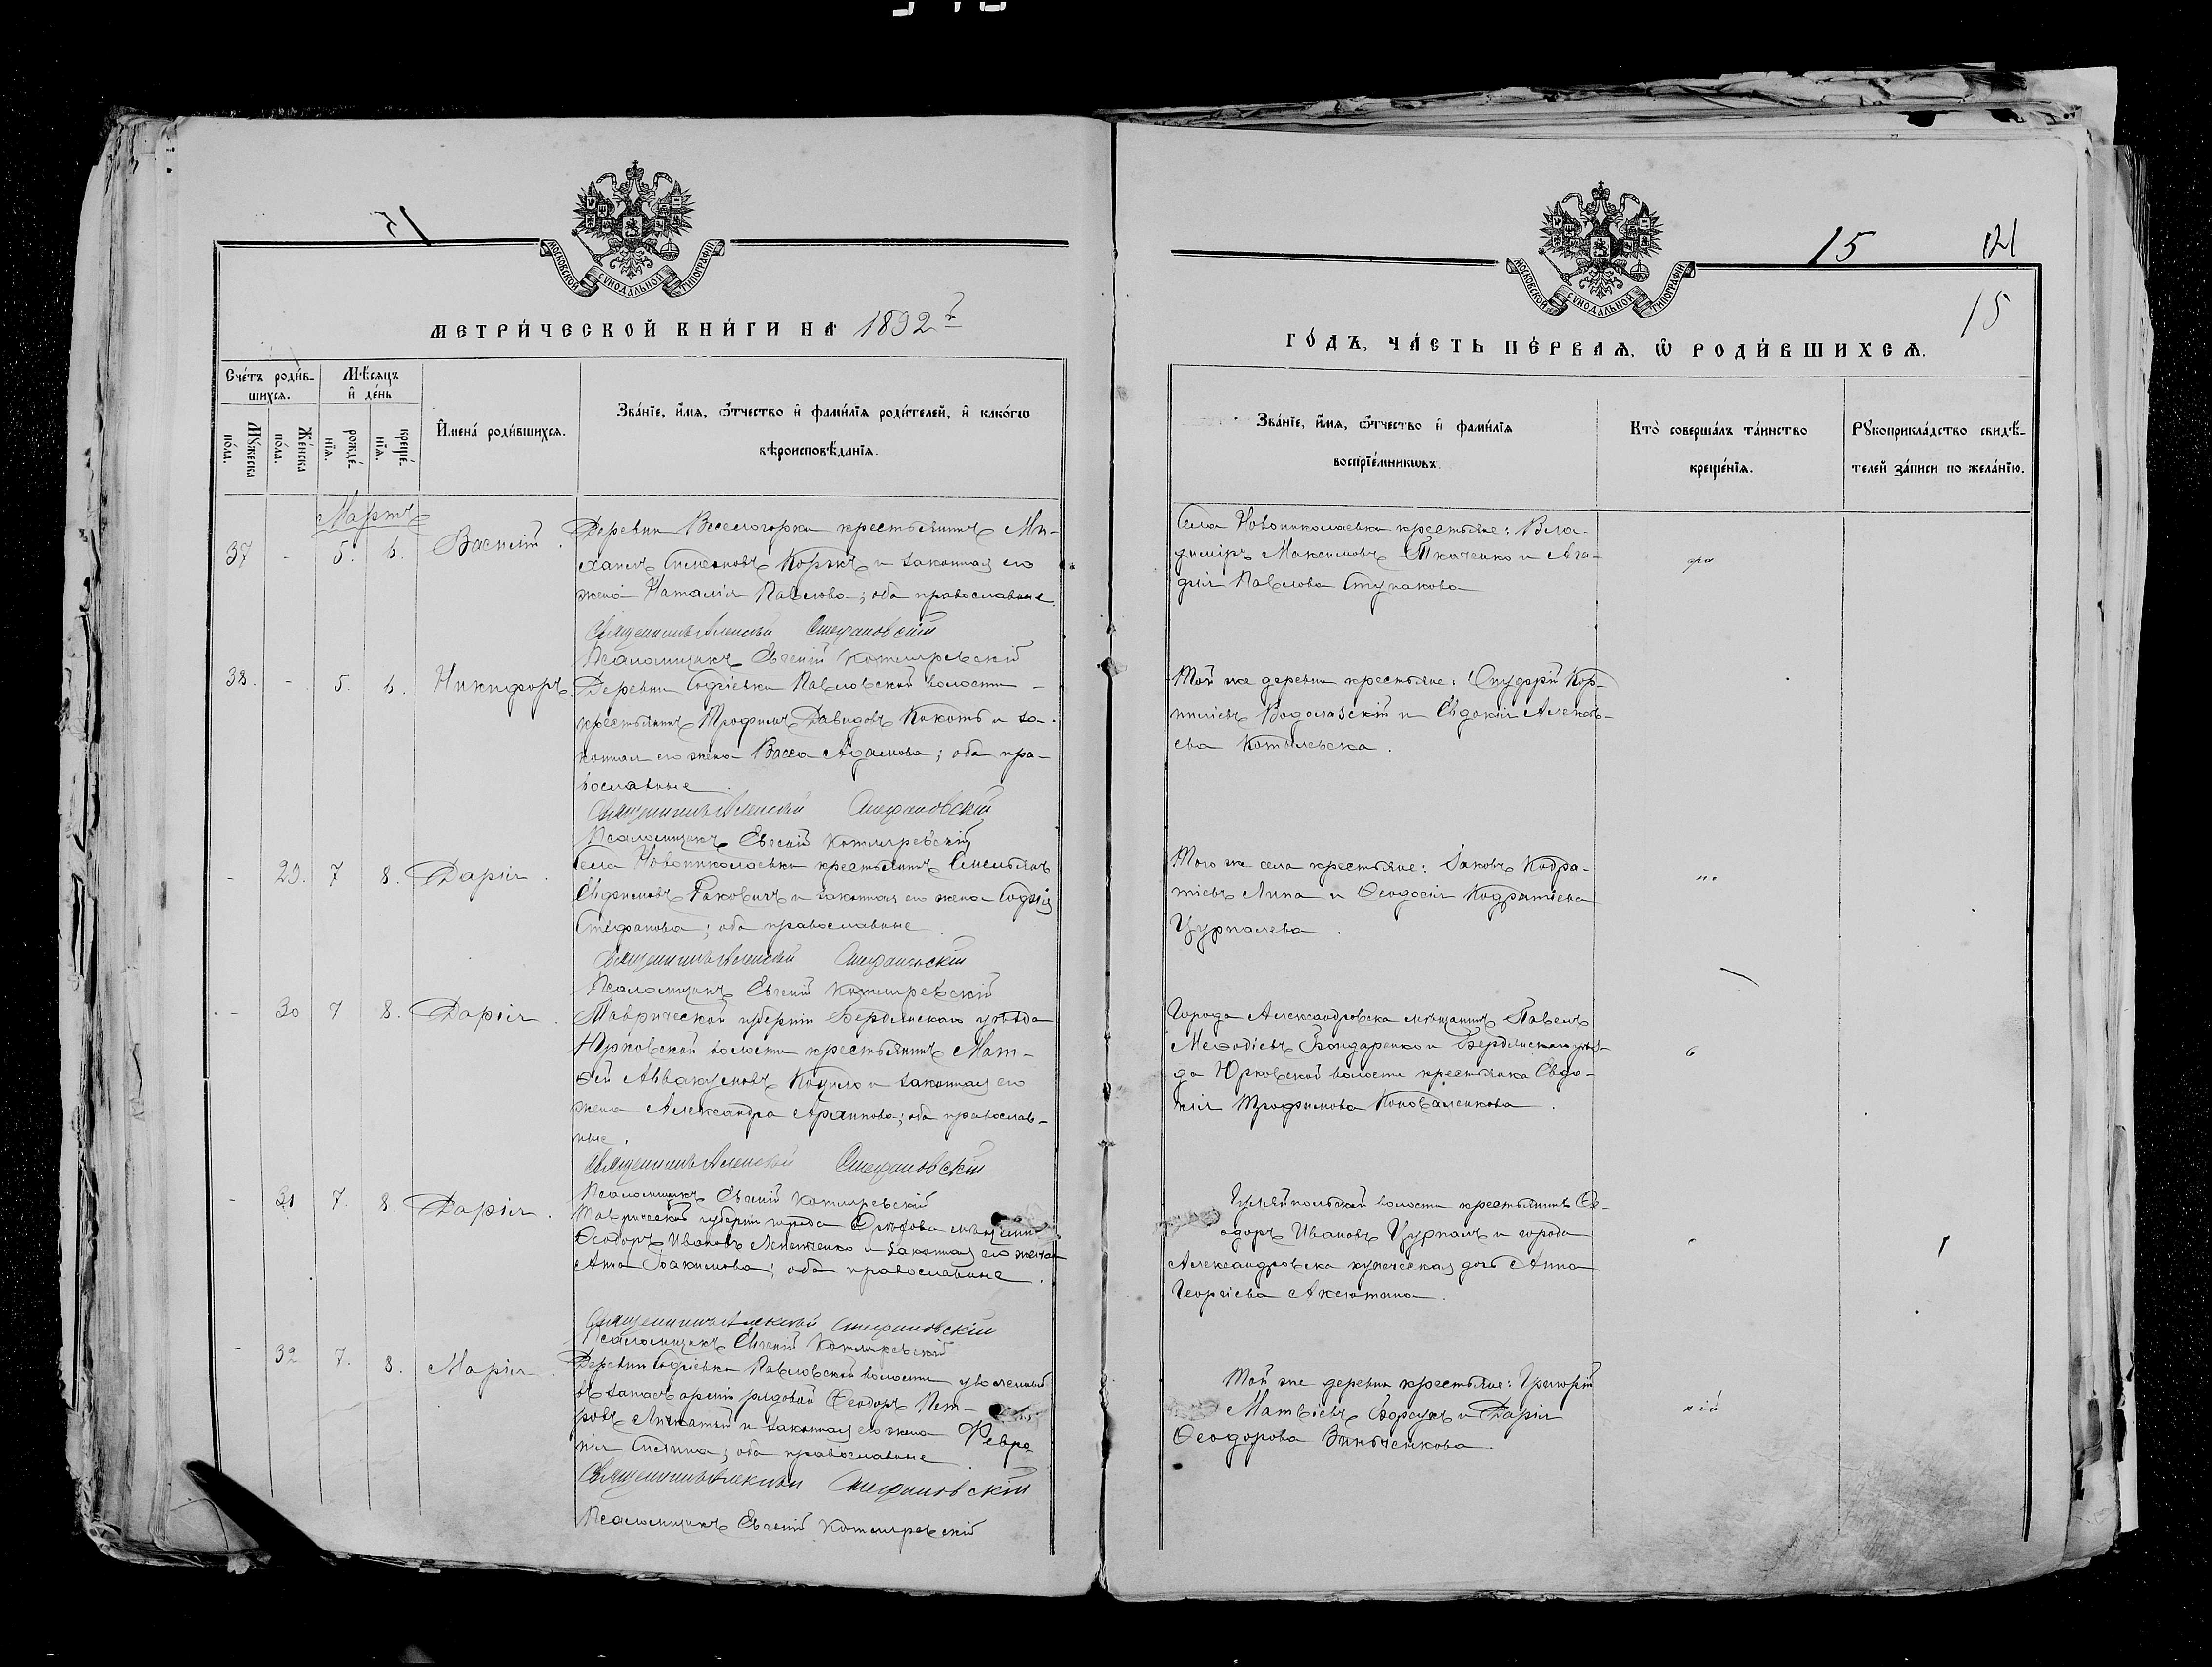 МОСКОВСКОЙ СѴНОДАЛЬНОЙ ТИПОГРАФІИ
МЕТРИ́ЧЕСКОЙ КНИ́ГИ НА 1892 г.
Сче́тъ роди́в-
шихся.
Мѣсяцъ
и҆ де́нь
Мꙋ́жеска
по́ла.
Же́нска
по́ла.
рожде́-
нїѧ.
креще́-
нїѧ.
И҆мена́ роди́вшихся.
Зва́нїе, и҆́мѧ, ѻ҆́тчество и҆ фами́лїѧ роди́телей, и҆ како́гѡ
вѣроисповѣ́данїѧ.
Мартъ
37 - 5. 6. Василій.
Деревни Веселогорки крестьянинъ Ми-
хаилъ Симеоновъ Коржъ и законная его
жена Наталія Павлова; оба православные.
Священникъ Алексѣй Стефановскій
Псаломщикъ Евгеній Котляревскій
38. - 5. 6. Никифоръ.
Деревни Софіевки Павловской волости
крестьянинъ Трофимъ Давидовъ Кикоть и за-
конная его жена Васса Адамова; оба пра-
вославные.
Священникъ Алексѣй Стефановскій
Псаломщикъ Евгеній Котляревскій
- 29. 7 8. Дарія.
Села Новониколаевки крестьянинъ Емельянъ
Ефимовъ Раковичъ и законная его жена Софія
Стефанова; оба православные.
Священникъ Алексѣй Стефановскій
Псаломщикъ Евгеній Котляревскій
- 30 7 8. Дарія.
Таврической губерніи Бердянскаго уѣзда
Юрковской волости крестьянинъ Мат-
ѳей Аввакумовъ и законная его
жена Александра; оба православ-
ные.
Священникъ Алексѣй Стефановскій
Псаломщикъ Евгеній Котляревскій
- 31 7. 8. Дарія.
Таврической губерніи города Орѣхова мѣщанинъ
Ѳеодоръ Ивановъ и законная его жена
Анна Іоакимова; оба православные.
Священникъ Алексѣй Стефановскій
Псаломщикъ Евгеній Котляревскій
- 32 7. 8. Марія.
Деревни Софіевки Павловской волости уволенный
въ запасъ арміи рядовой Ѳеодоръ Пет-
ровъ и законная его жена Февро-
нія; оба православные.
Священникъ Алексѣй Стефановскій
Псаломщикъ Евгеній Котляревскій
15
15
МОСКОВСКОЙ СѴНОДАЛЬНОЙ ТИПОГРАФІИ
ГО́ДЪ, ЧА́СТЬ ПЕ́РВАѦ, Ѡ҆ РОДИ́ВШИХСѦ.
Зва́нїе, и҆́мѧ, ѻ҆́тчество и҆ фами́лїѧ
воспрїе́мникѡвъ.
Кто̀ соверша́лъ та́инство
креще́нїѧ.
Рꙋкоприкла́дство свидѣ́-
телей за́писи по жела́нїю.
Села Новониколаевки крестьяне: Вла-
диміръ Максимовъ Ткаченко и Ага-
фія Павлова Ступакова
Той же деревни крестьяне: Онуфрій Кор-
ниліевъ Водолазскій и Евдокія Алексѣ-
ева Котылевска.
Того же села крестьяне: Іаковъ Кодра-
тіевъ Липа и Ѳеодосія Кодратіева
Цурпалева.
Города Александровска мѣщанинъ Павелъ
Меѳодіевъ Бондаренко и Бердянскаго уѣз-
да Юрковской волости крестьянка Евдо-
кія Трофимова Коноваленкова.
Гуляйпольской волости крестьянинъ Ѳе-
одоръ Ивановъ Цурпалъ и города
Александровска купеческая дочь Анна
Георгіева Аксютина.
Той же деревни крестьяне: Григорій
Матвіевъ Борсукъ и Дарія
Ѳеодорова Винниченкова.